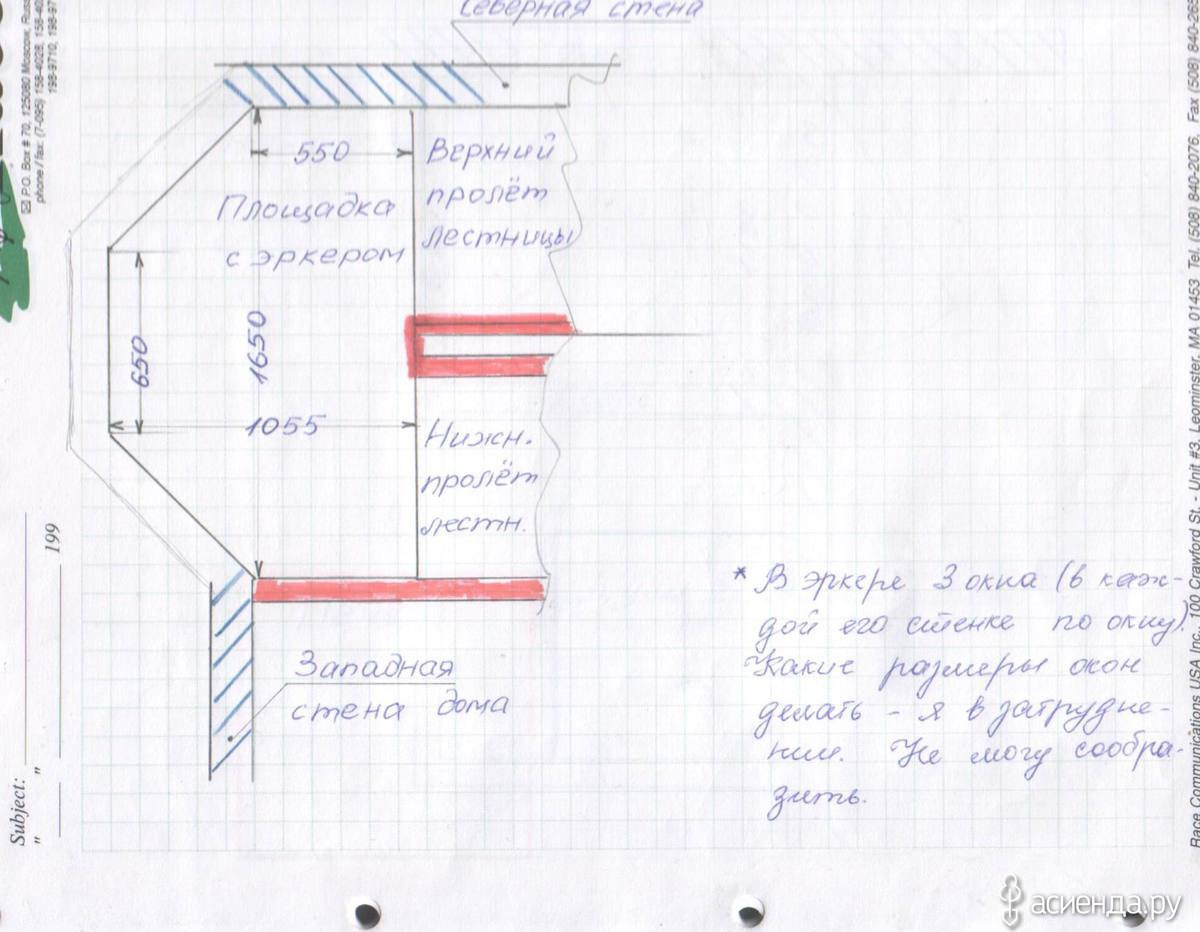 Северная стена
550
Верхний
пролёт
лестницы
Площадка
с эркером
650
1650
1055
Нижн.
пролёт
лестн.
Западная
стена дома
* В эркере 3 окна (в каж-
дой его стенке по окну).
Какие размеры окон
делать - я в затрудне-
нии. Не могу сообра-
зить.
Subject:
" " 199
P.O. Box # 70, 125080 Moscow, Russ
phone / fax: (7-095) 158-4028, 158-40
198-9710, 198-97
Race Communications USA Inc., 100 Crawford St. - Unit #3, Leominster, MA 01453 Tel. (508) 840-2076, Fax (508) 840-266
асиенда.ру